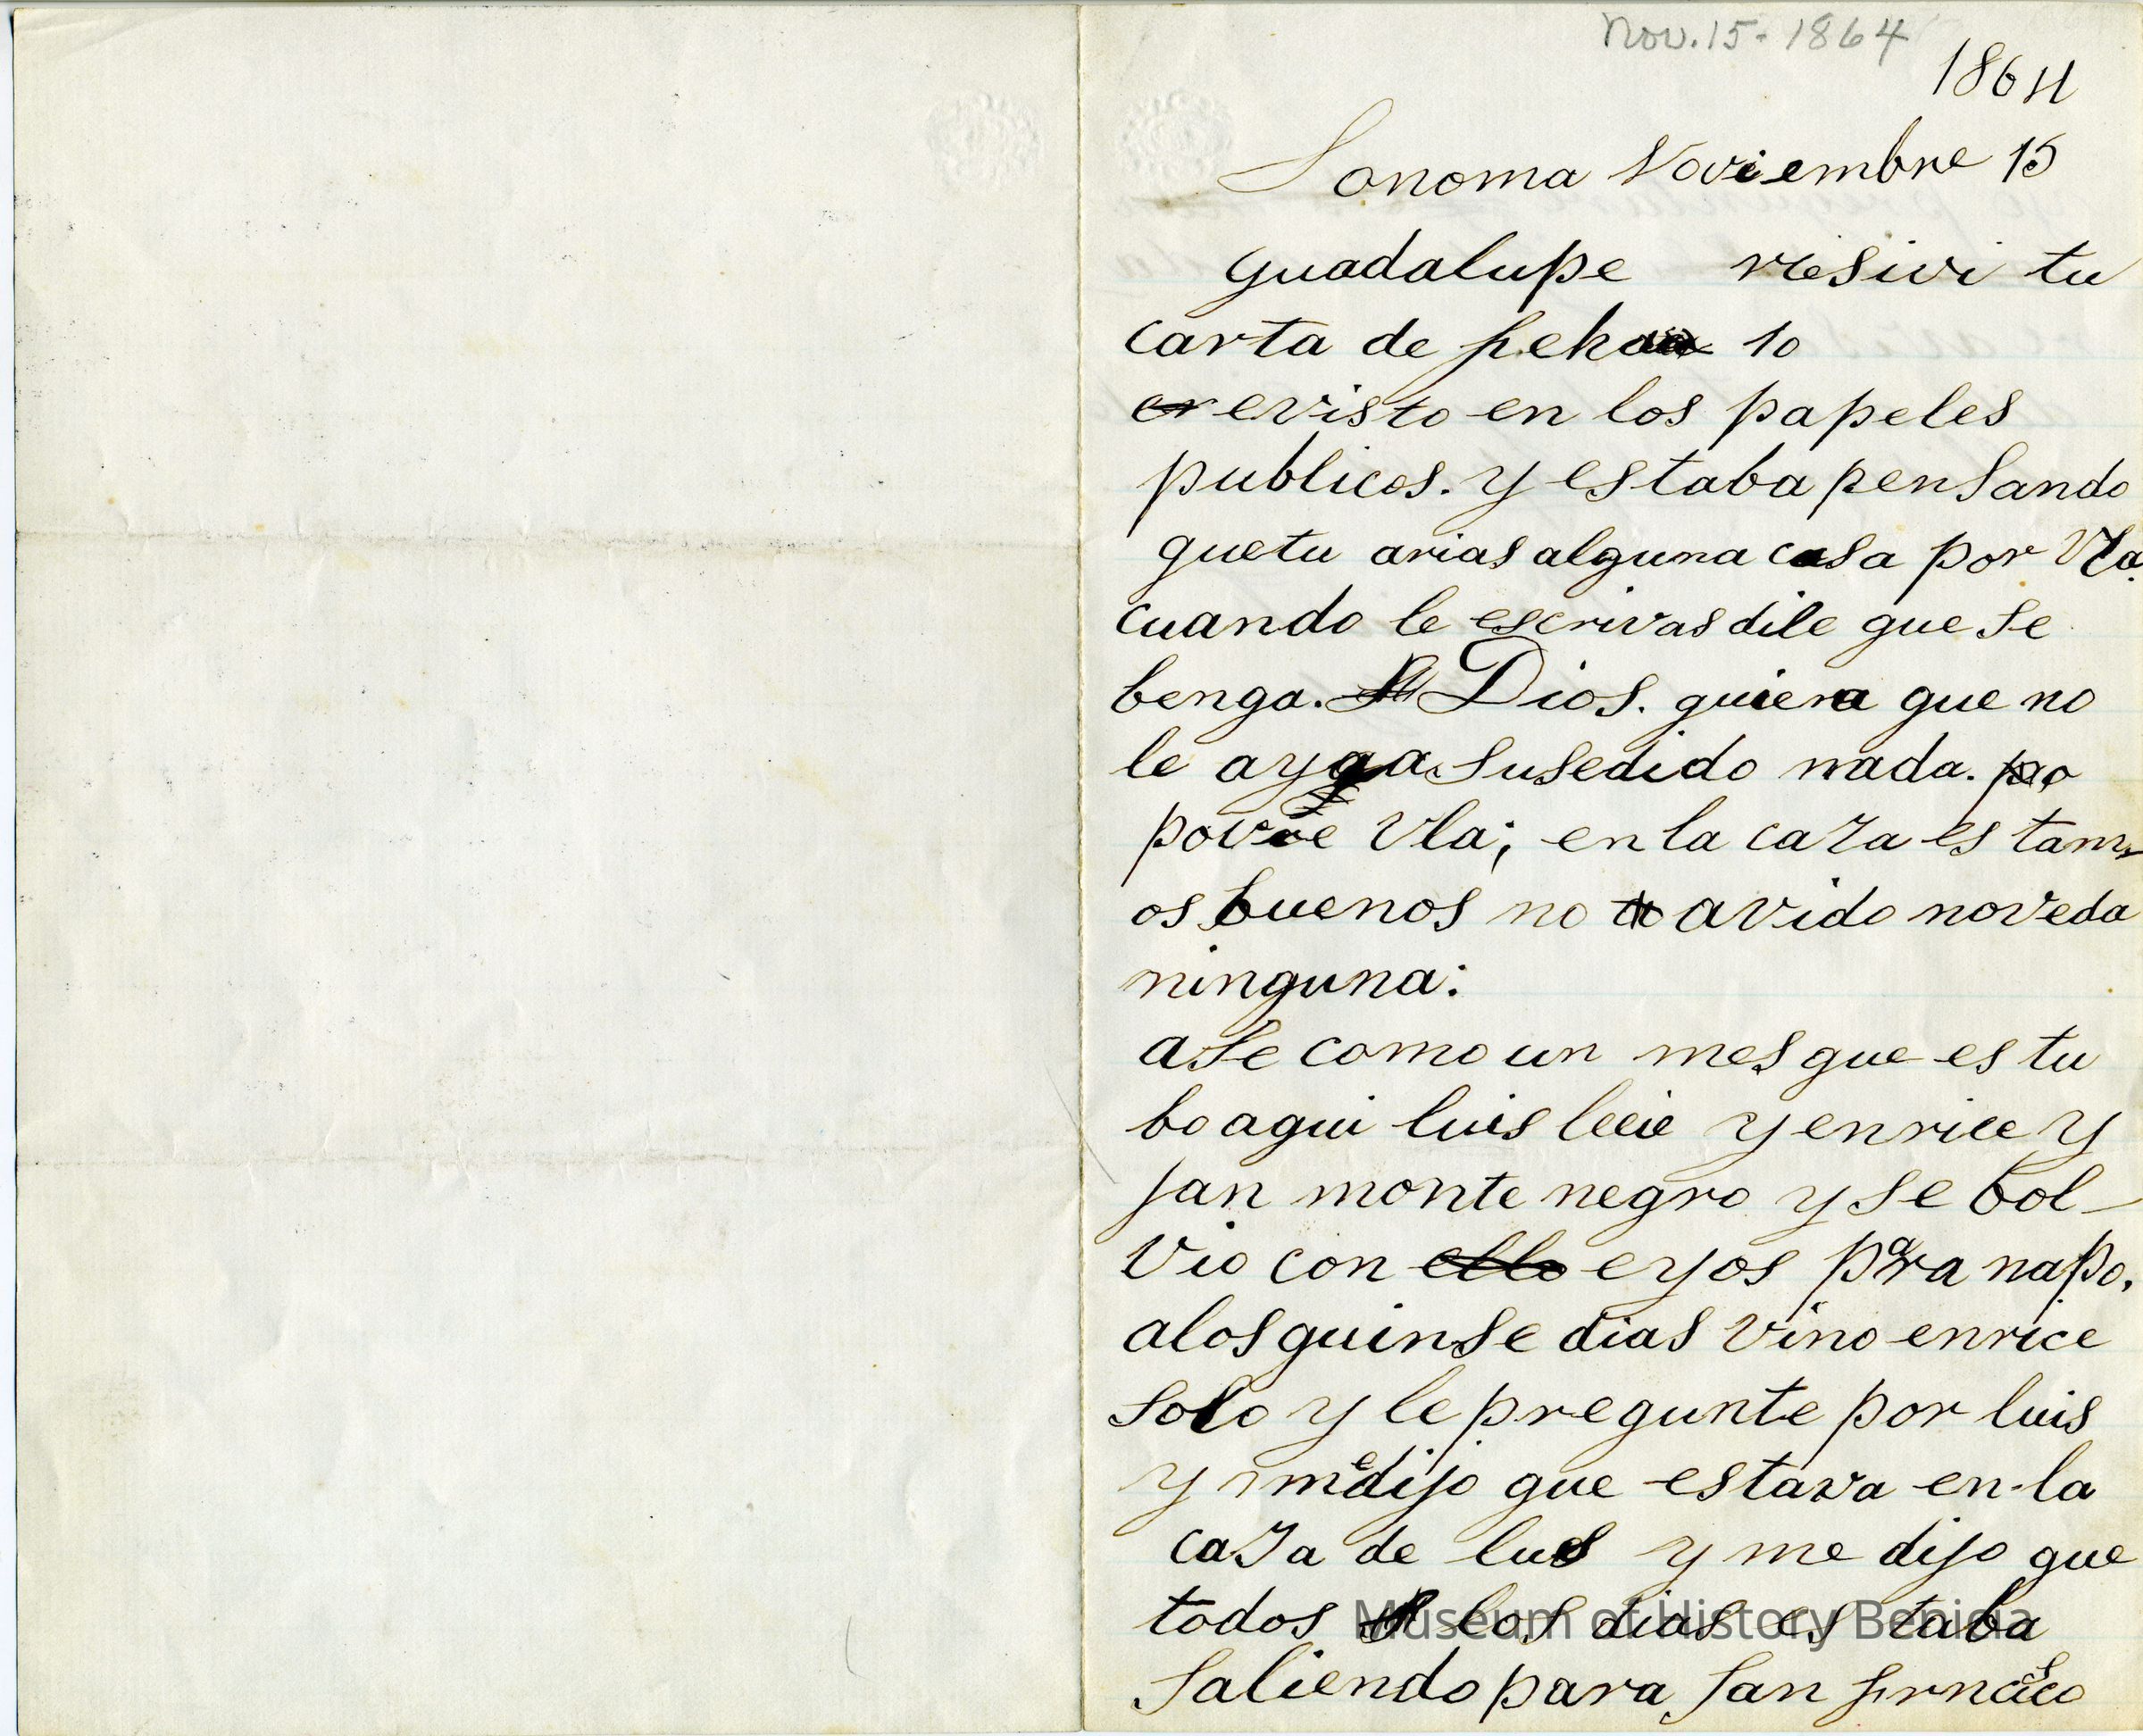 Nov. 15 - 1864
1864
Sonoma Noviembre 15
guadalupe resivi tu
carta de feha 10
evisto en los papeles
publicos. y estaba pensando
que tu arias alguna casa por Ula.
cuando le escrivas dile que se
benga. Dios. quiera que no
le ayga susedido nada.
povre Ula; en la caza es tam
os buenos no avido noveda
ninguna:
ase como un mes que es tu
bo aqui luis y enrice y
jan monte negro y se bol-
vio con eyos para napa.
alos quinse dias vino enrice
solo y le pregunte por luis
y me dijo que estava en la
caza de lus y me dijo que
todos los dias es taba
saliendo para san frncisco
Museum of History Benicia